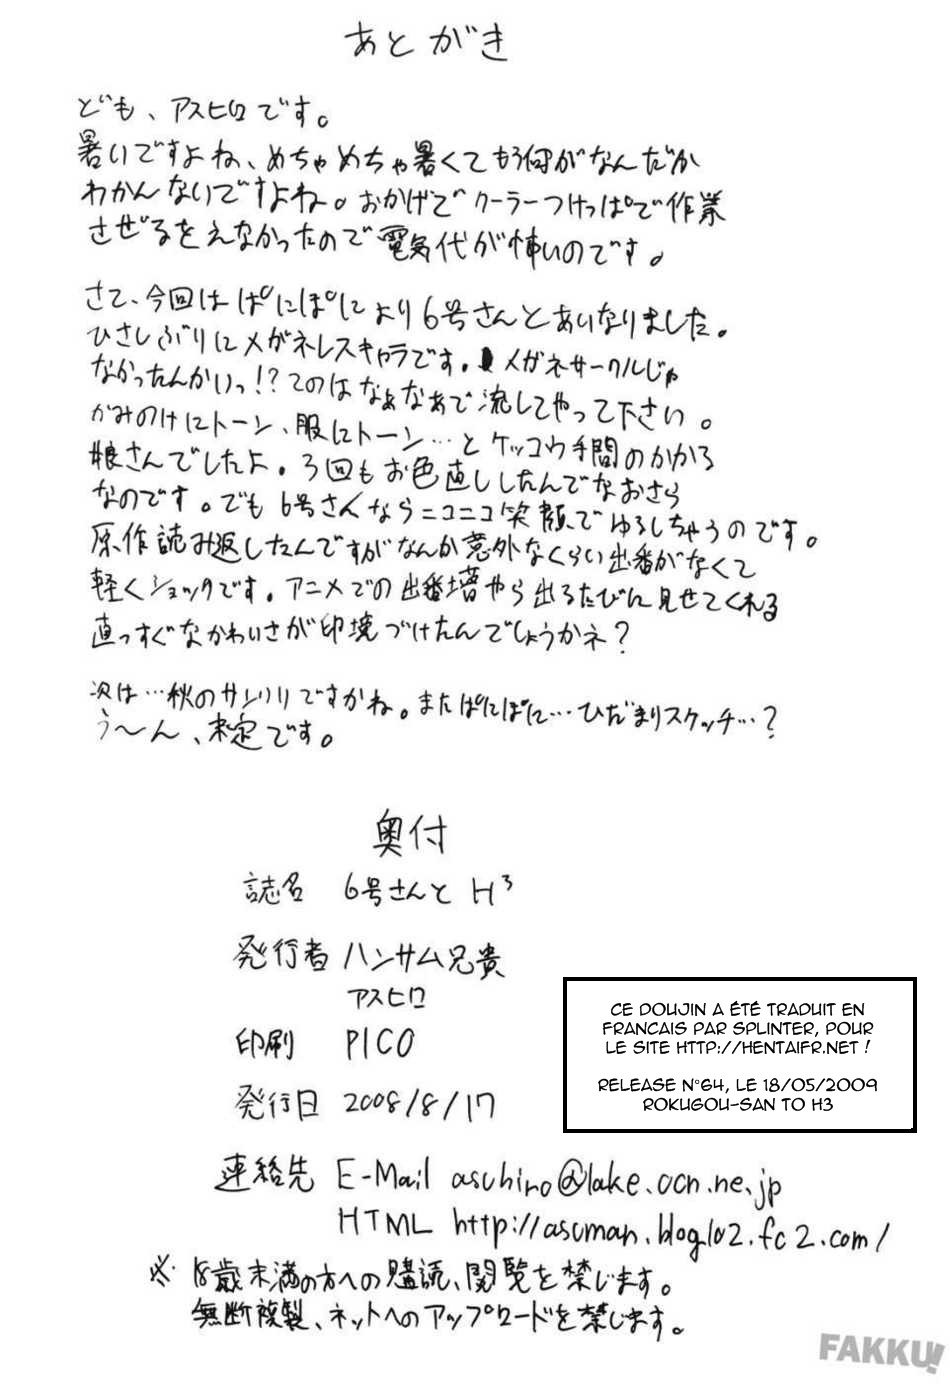 あとがき
ども、アスヒロです。
暑いですよね、めちゃめちゃ暑くてもう何がなんだか
わかんないですよね。おかげでクーラーつけっぱで作業
させざるをえなかったので電気代が怖いのです。
さて、今回はぱにぽにより6号さんとあいなりました。
ひさしぶりにメガネレスキャラです。メガネサークルじゃ
なかったんかいっ!?てのはなぁなぁで流してやって下さい。
かみのけにトーン、服にトーン…とケッコウ手間のかかる
娘さんでしたよ。3回もお色直ししたんでなおさら
なのです。でも6号さんならニコニコ笑顔でゆるしちゃうのです。
原作読み返したんですがなんか意外なくらい出番がなくて
軽くショックです。アニメでの出番増やら出るたびに見せてくれる
直っすぐなかわいさが印境づけたんでしょうかネ?
次は…秋のサンクリですかね。またぱにぽに…ひだまりスケッチ…?
う〜ん、未定です。
奥付
誌名 6号さんと H³
発行者 ハンサム兄貴
アスヒロ
印刷 PICO
発行日 2008/8/17
連絡先 E-Mail aschiro@lake.ocn.ne.jp
HTML http://ascman.blog102.fc2.com/
※18歳未満の方への購読、閲覧を禁じます。
無断複製、ネットへのアップロードを禁じます。
CE DOUJIN A ÉTÉ TRADUIT EN
FRANCAIS PAR SPLINTER, POUR
LE SITE HTTP://HENTAIFR.NET !
RELEASE N°64, LE 18/05/2009
ROKUGOU-SAN TO H3
FAKKU!